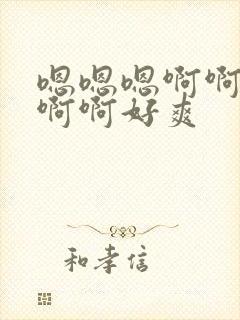 嗯嗯嗯啊啊
啊啊好爽
和孝信